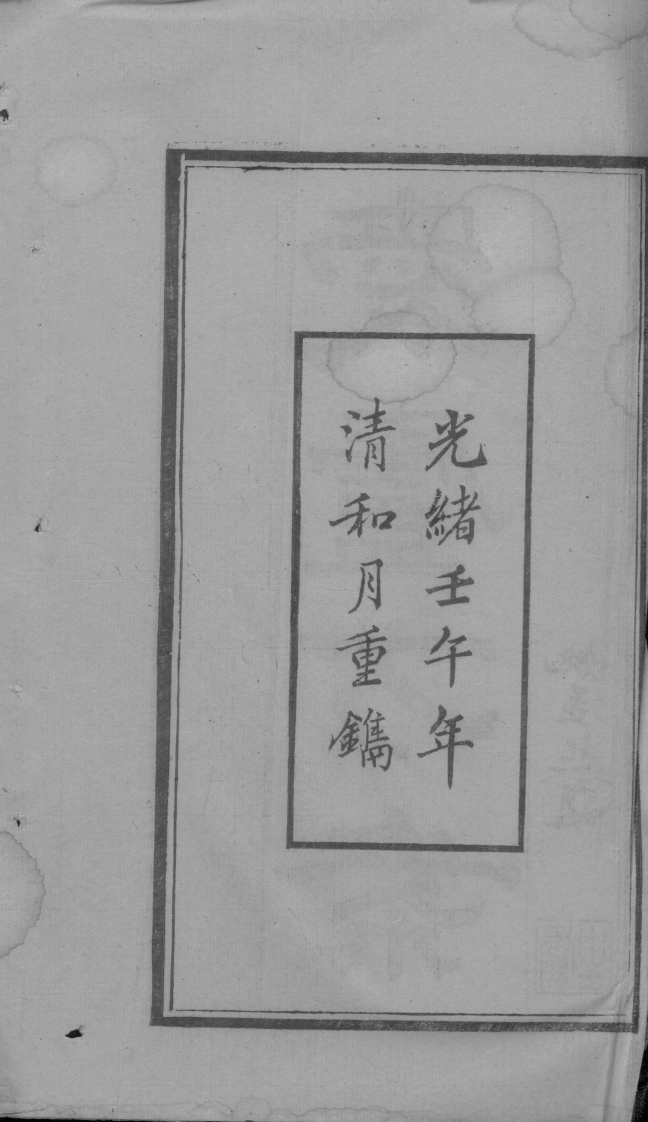 光緒壬午年
清和月重鐫